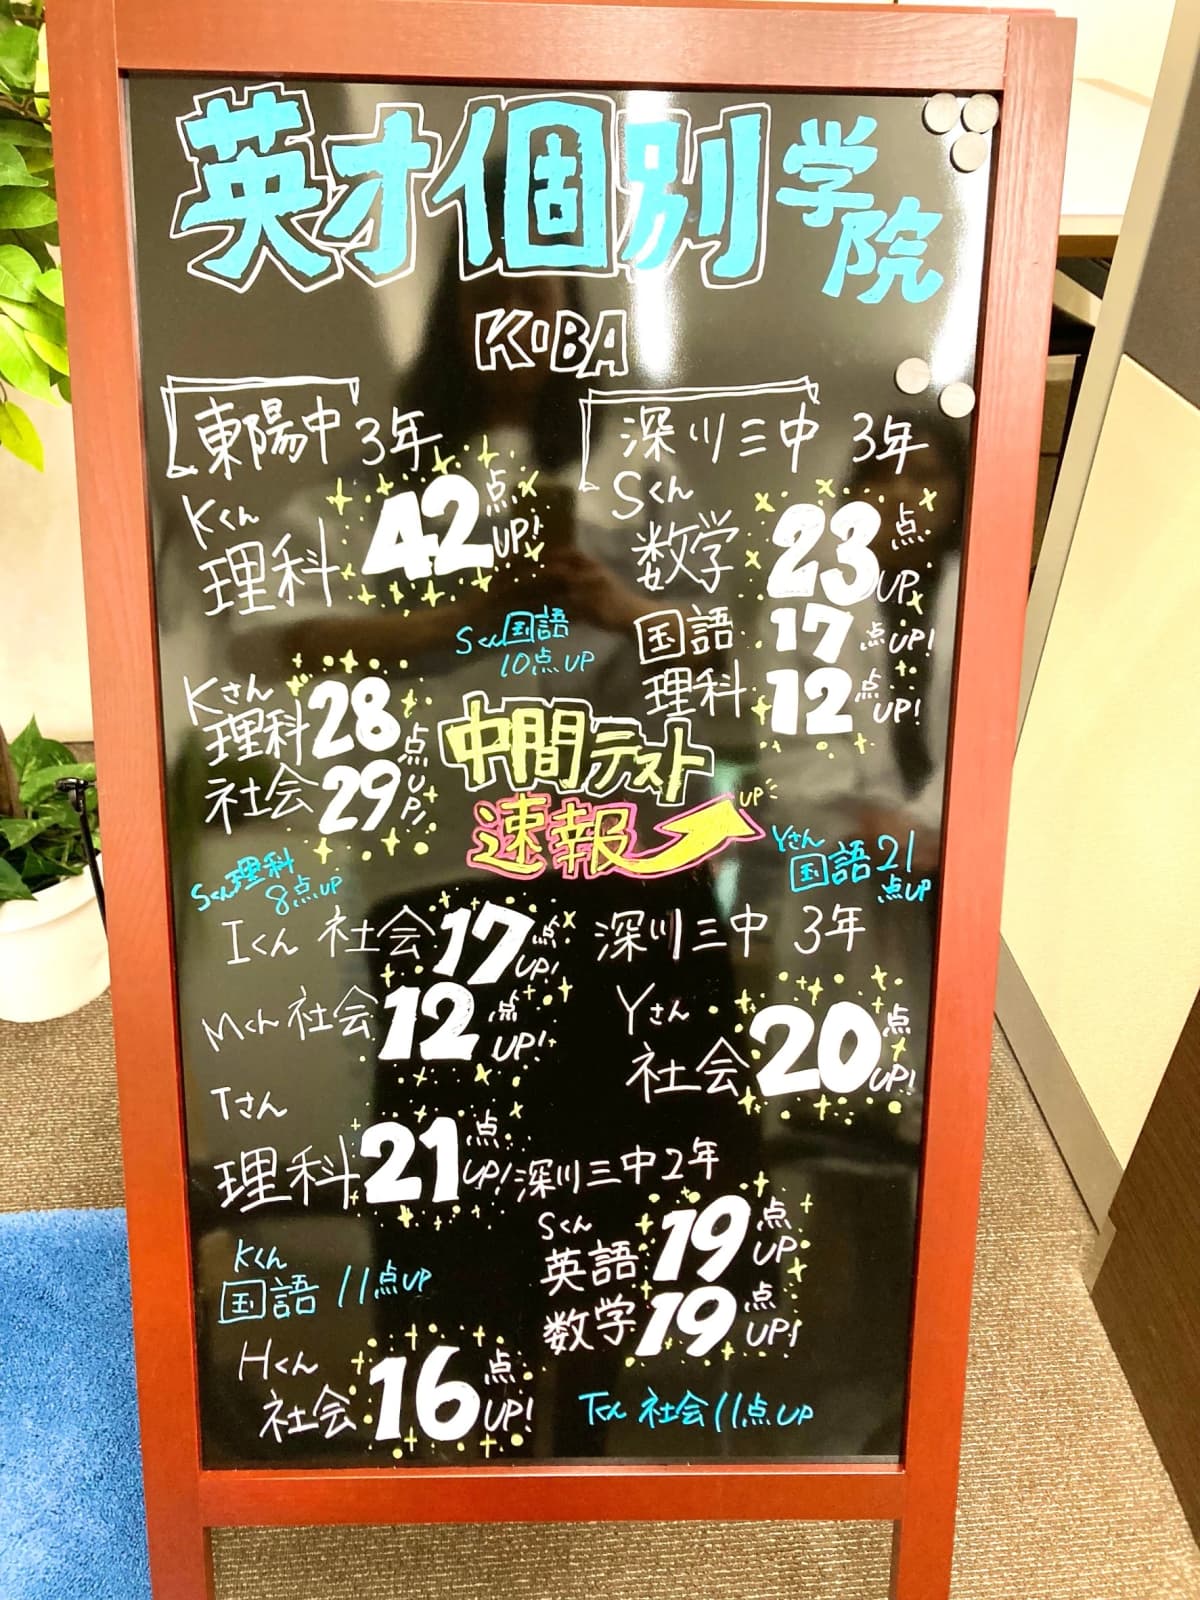 英才個別学院
KIBA
東陽中 3年
Kくん
理科 42点UP!
Sくん国語
10点UP
Kさん
理科 28
社会 29 点UP!
Sくん理科
8点UP
Iくん 社会 17点UP!
Mくん 社会 12点UP!
Tさん
理科 21点UP!
Kくん
国語 11点UP
Hくん
社会 16点UP!
中間テスト
速報 UP
深川三中 3年
Sくん
数学 23点UP
国語 17点UP!
理科 12点UP!
Yさん
国語 21点UP
深川三中 3年
Yさん
社会 20点UP!
深川三中2年
Sくん
英語 19点UP
数学 19点UP!
Tくん 社会11点UP